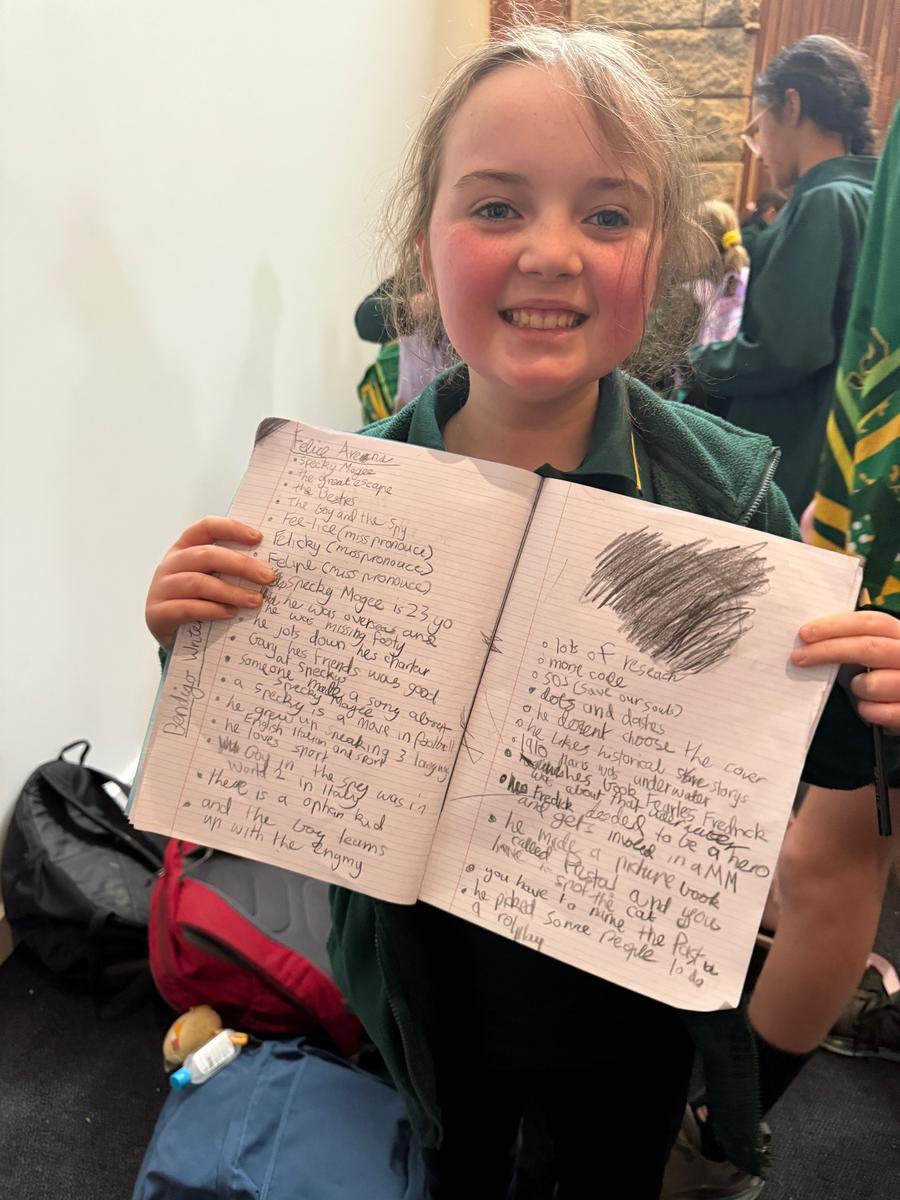 Felice Arena
• Specky Magee
• The great escape
• the Besties
• The Boy and the Spy
• Fee-lice (miss pronouce)
• Felicky (miss pronouce)
• Felipe (miss pronouce)
• Specky Magee is 23 yo
he was overeas and
he was missing footy
• he jots down hes
• Gary hes friends was good
at specky's
• someone made a song about
Specky Magee
• a specky is a move in football
• he grew up speaking 3
English Italian and sport
• he loves sport
• Boy in the spy was in
World 2 in Italy
• there is a ophan kid
• and the boy teams
up with the
Bendigo Writer
• lots of reseach
• more code
• SOS (save our souls)
• dots and dashes
• he dosent choose the cover
• he likes historical storys
• 1910 paris was underwater
hes book Fearles Fredrick
was about that
• Fredick desided to be a hero
and gets invold in a MM
• he made a picture book
called Pasta! and you
have spot the cat
• you have to name the Pasta
• he picked some people to do
a rollplay